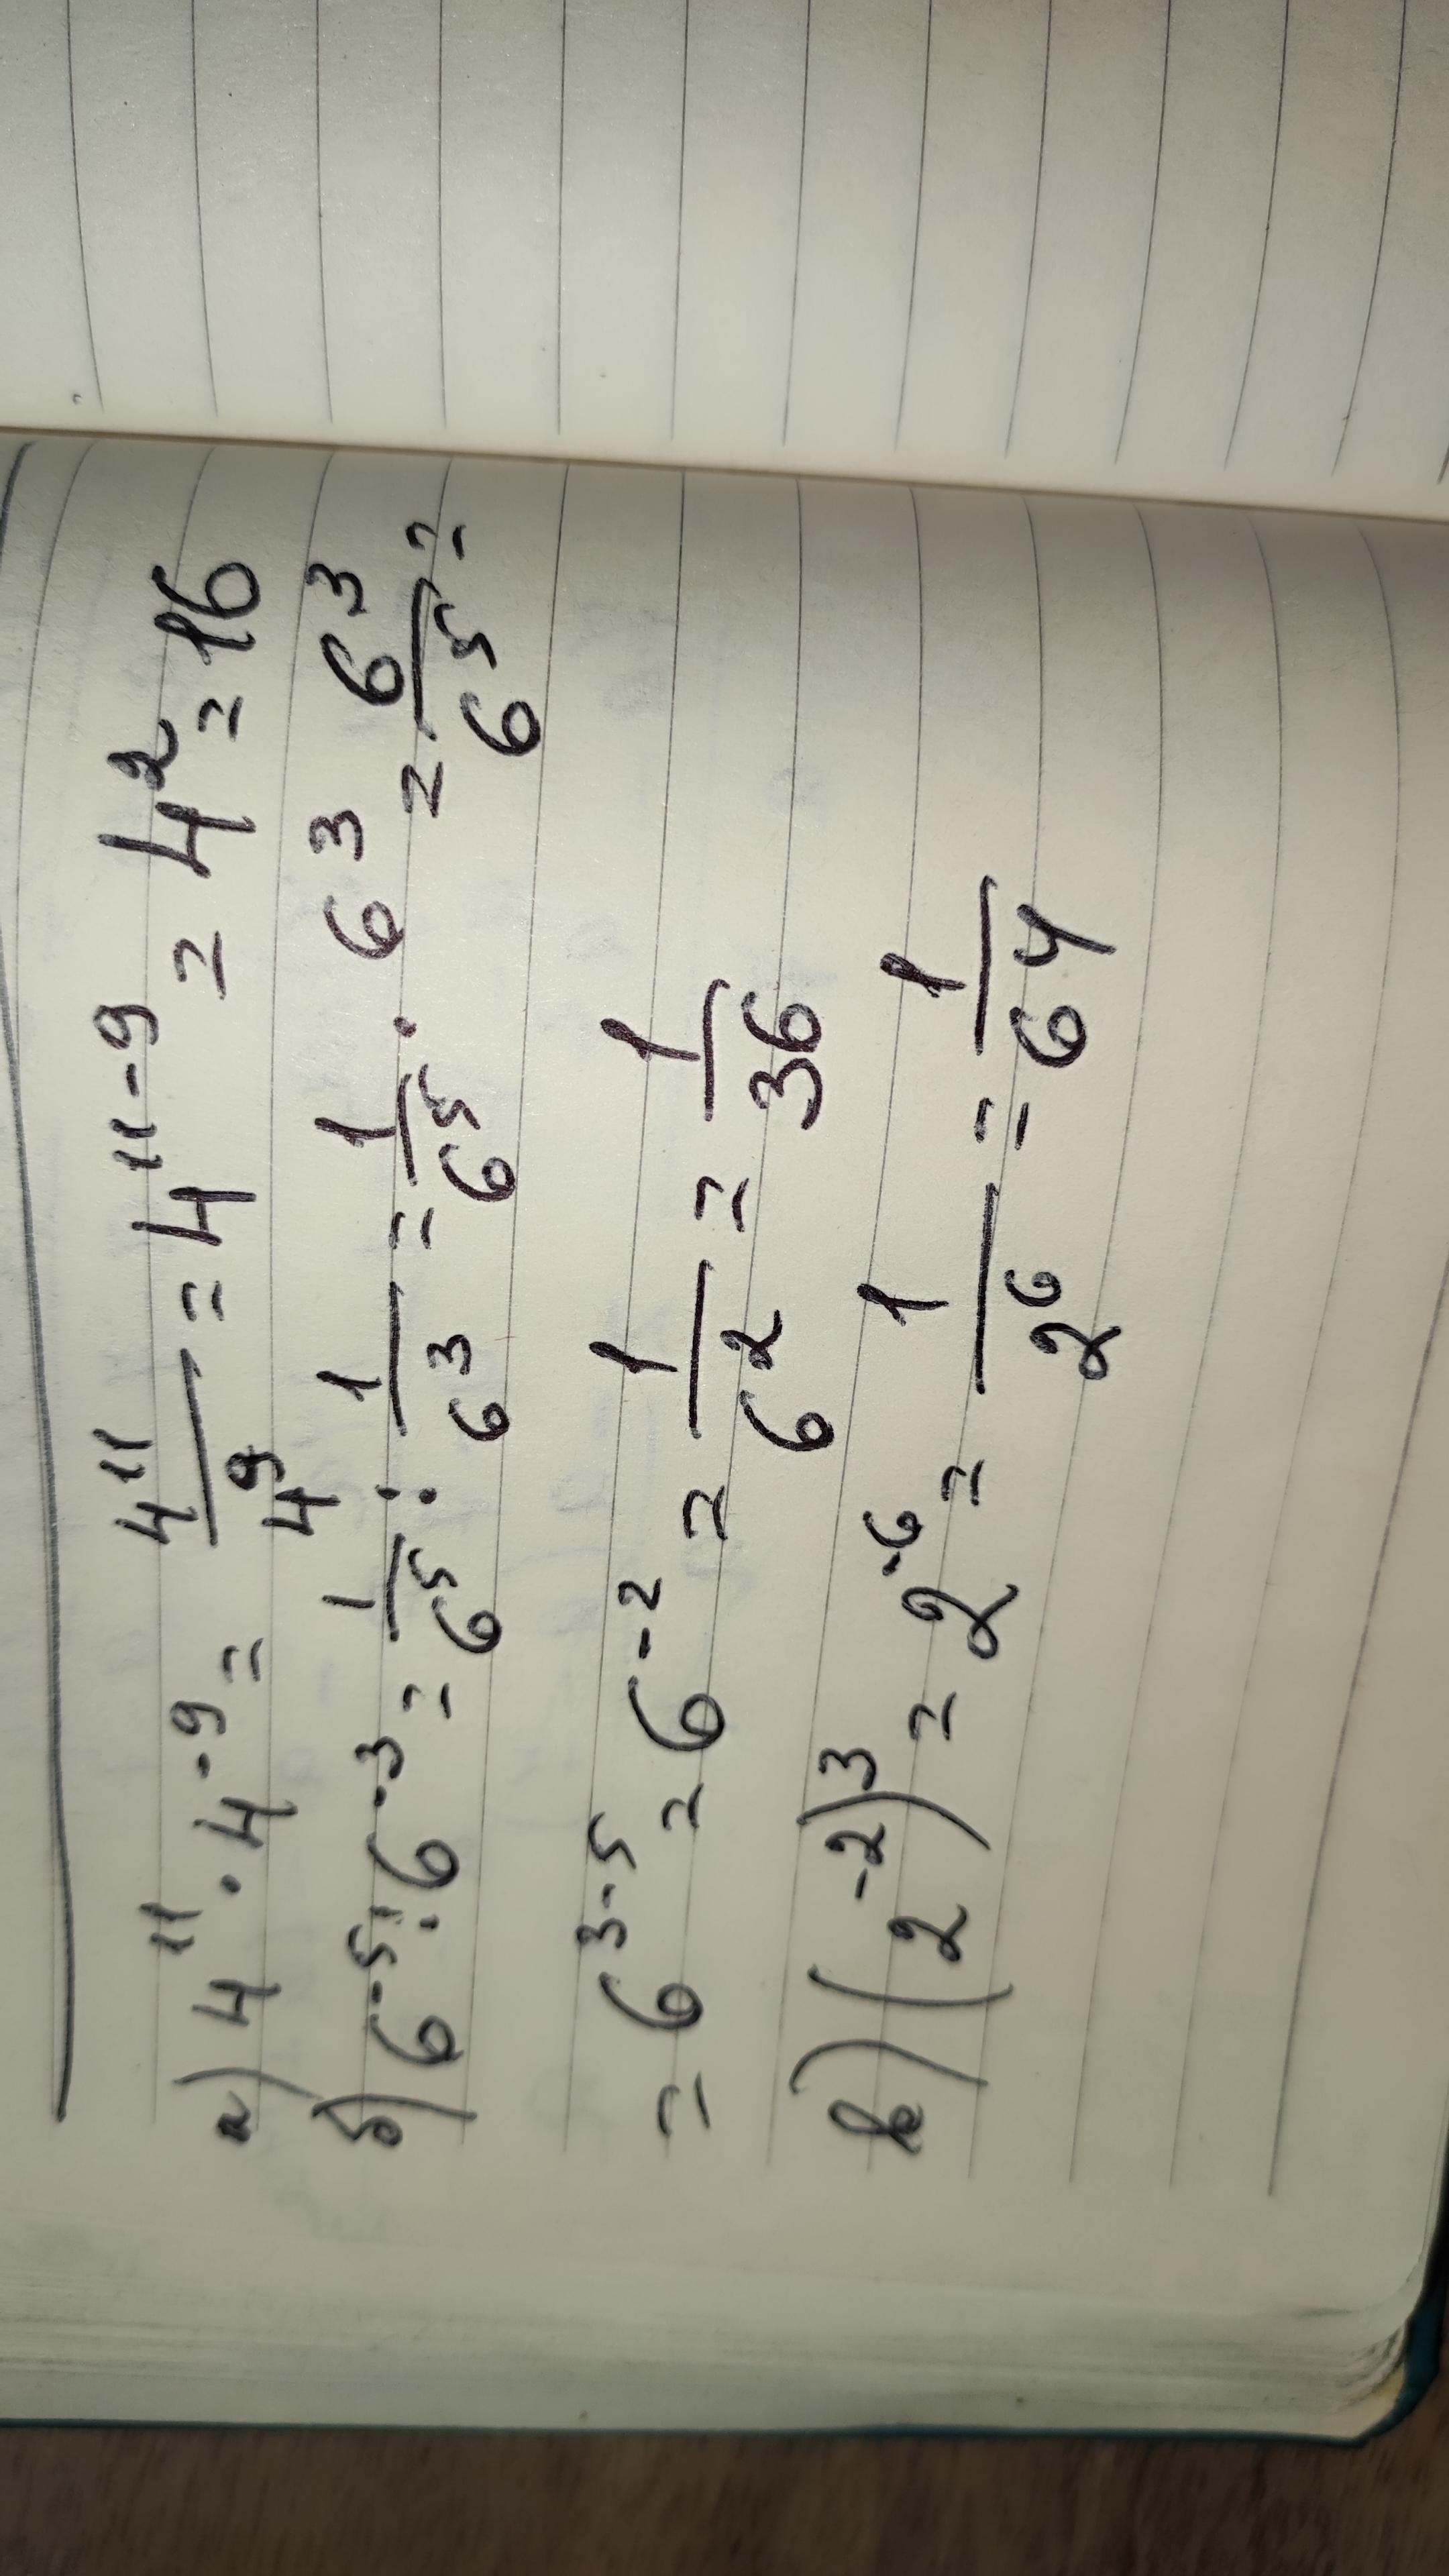 а) 4¹¹ · 4⁻⁹ = 4¹¹/4⁹ = 4¹¹⁻⁹ = 4² = 16
б) 6⁻⁵ : 6⁻³ = 1/6⁵ : 1/6³ = 1/6⁵ · 6³ = 6³/6⁵ =
= 6³⁻⁵ = 6⁻² = 1/6² = 1/36
в) (2⁻²)³ = 2⁻⁶ = 1/2⁶ = 1/64